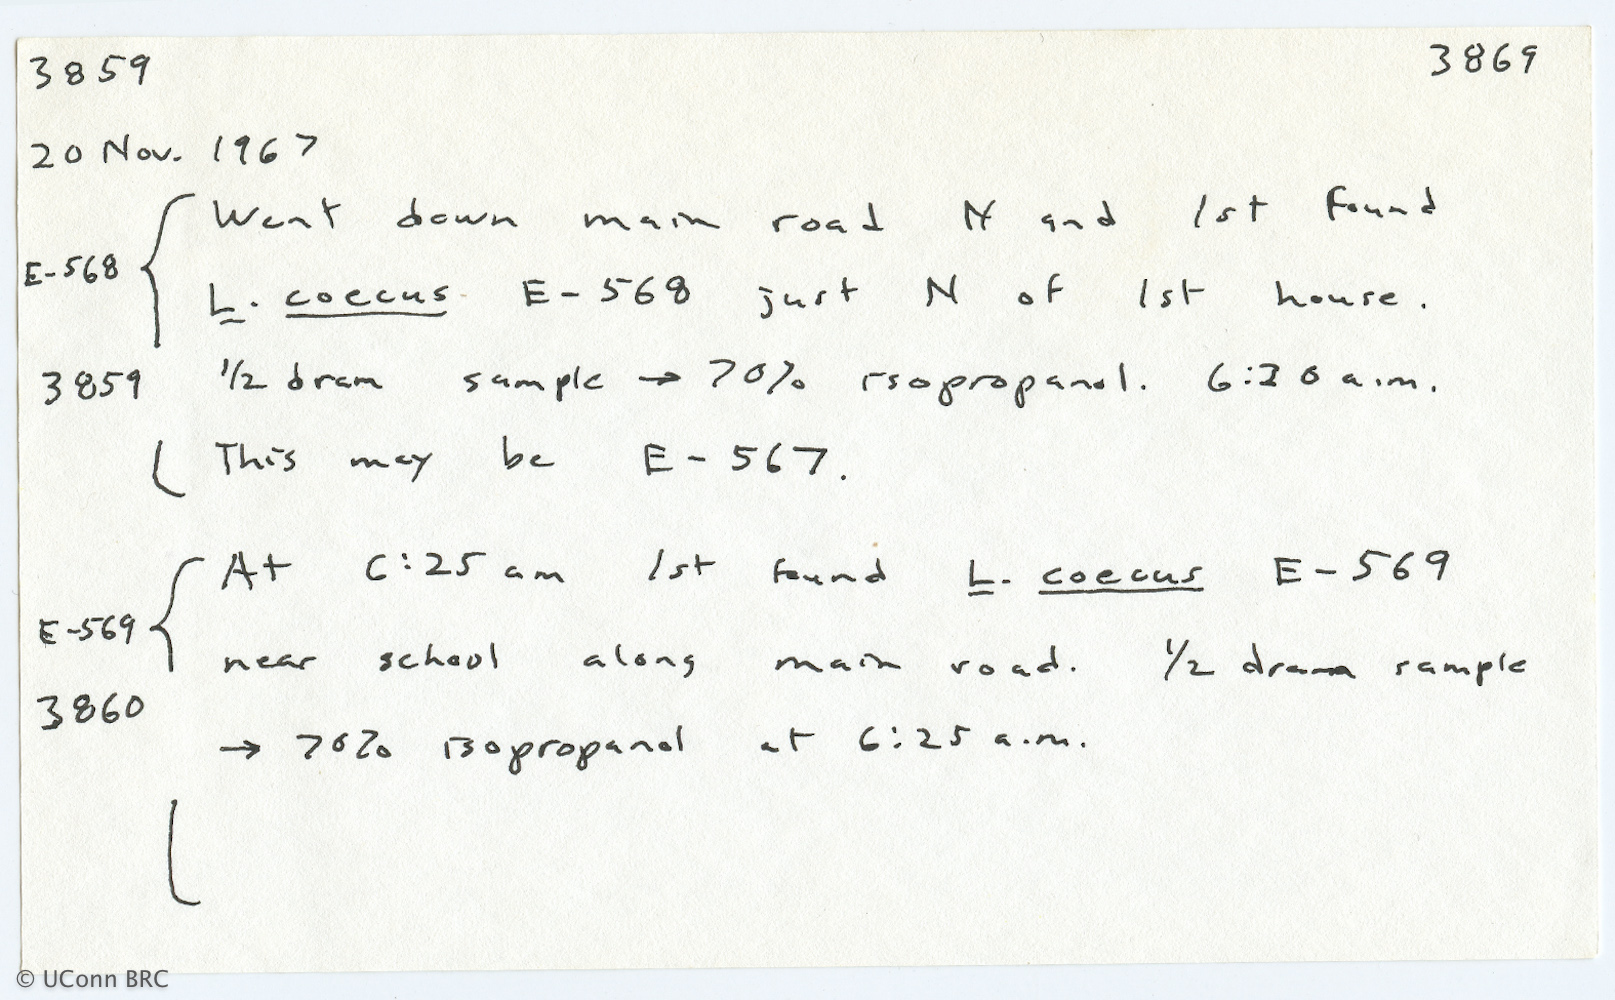 3859 3869
20 Nov. 1967
E-568 { Went down main road N and 1st found
L. coecus E-568 just N of 1st house.
3859 1/2 dram sample → 70% isopropanol. 6:20 a.m.
This may be E-567.
At 6:25 am 1st found L. coecus E-569
E-569 { near school along main road. 1/2 dram sample
3860 → 70% isopropanol at 6:25 a.m.
© UConn BRC